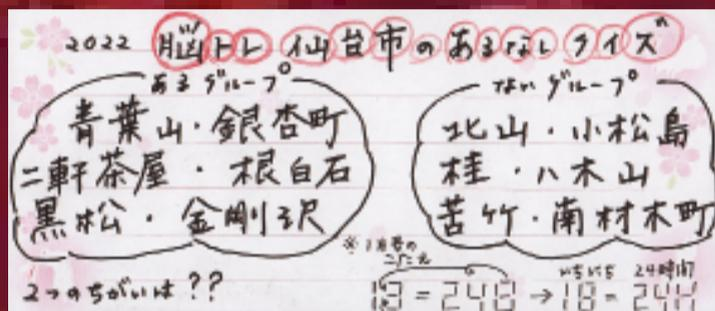 2022 脳トレ 仙台市のあるなしクイズ
あるグループ
青葉山・銀杏町
二軒茶屋・根白石
黒松・金剛沢
ないグループ
北山・小松島
桂・八木山
苦竹・南材木町
2つのちがいは??
※1月号のこたえ
いちにち 24時間
→18=24H